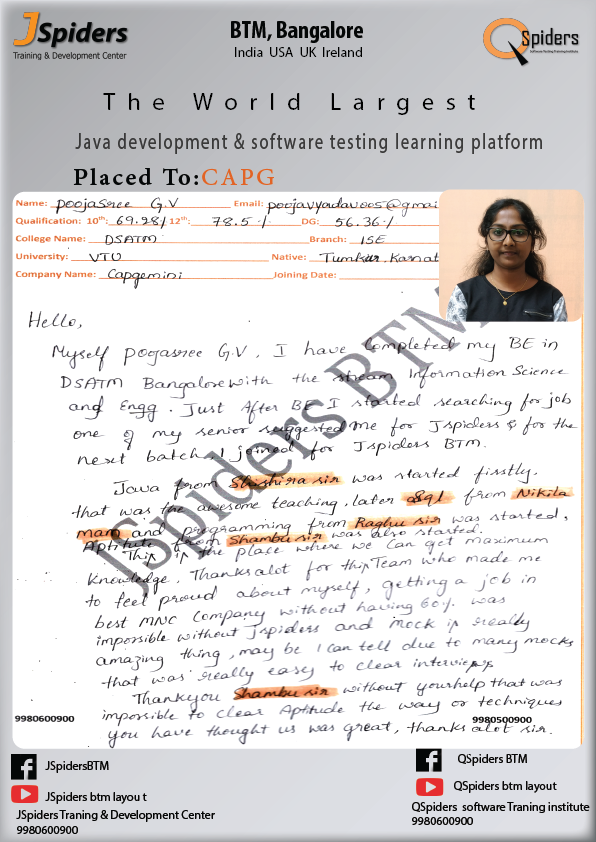 JSpiders
Training & Development Center
BTM, Bangalore
India USA UK Ireland
QSpiders
Software Testing Training Institute
The World Largest
Java development & software testing learning platform
Placed To:CAPG
Name: Poojasree G.V Email: poojavyadav005@gmai
Qualification: 10th: 69.28/. 12th: 78.5./. DG: 56.36./.
College Name: DSATM Branch: ISE
University: VTU Native: Tumkur, Karnat
Company Name: Capgemini Joining Date:
Hello,
Myself poojasree G.V, I have completed my BE in
DSATM Bangalore with the stream Information Science
and Engg. Just After BE I started searching for job
one of my senior suggested me for Jspiders & for the
next batch, I joined for Jspiders BTM.
Java from Shishira sir was started firstly.
that was the awesome teaching, later from Nikila
mam and programming from Raghu sir was started,
Aptitute from Shambu sir was also started.
This is the place where we can get maximum
knowledge. Thanks alot for this Team who made me
to feel proud about myself, getting a job in
best MNC Company without having 60%. was
imporible without Jspiders and mock is really
amazing thing, may be I can tell due to many mocks
that was really easy to clear interviews
Thankyou Shambu sir without your help that was
imporible to clear Aptitude the way or techniques
you have thought us was great, thanks alot sir.
JSpiders BTM
9980600900
9980500900
JSpidersBTM
JSpiders btm layou t
JSpiders Traning & Development Center
9980600900
QSpiders BTM
QSpiders btm layout
QSpiders software Traning institute
9980600900